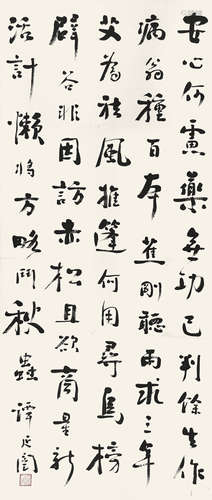 安心何處藥無功已判餘生作
病翁種百本蕉剛聽雨求三年
艾為祛風推篷何用尋烏榜
辟谷非因訪赤松且欲商量新
活計懶將方略鬥秋蟲 譚延闓